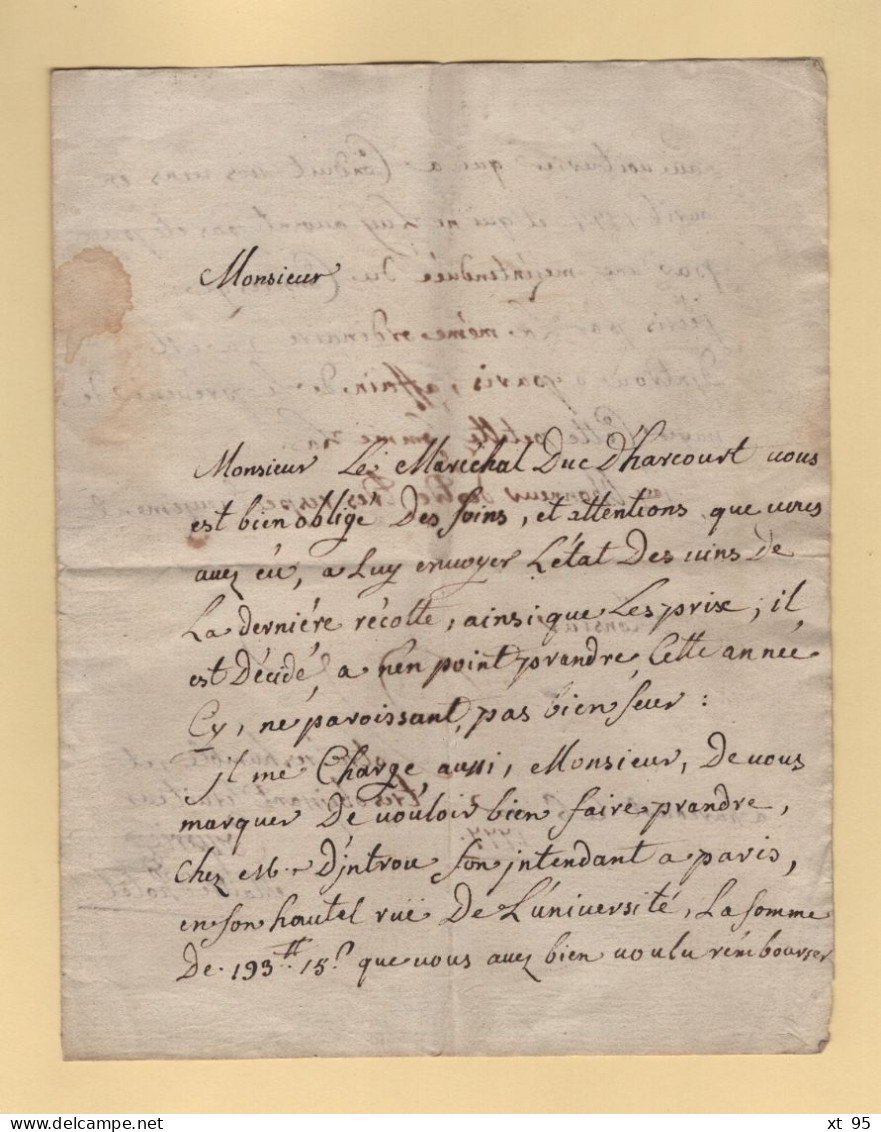 Monsieur
Monsieur Le Maréchal Duc D'harcourt vous
est bien obligé Des soins, et attentions que vous
avez éu, a Luy envoyer L'état Des vins De
La derniére récolte, ainsi que Les prix; il
est Décidé, a n'en point prandre, Cette année
Cy, ne paroissant, pas bien seur :
jl me Charge aussi, Monsieur, De vous
marquer De vouloir bien faire prandre,
chez M.r D'jntrou son jntendant a paris,
en son hautel ruë De L'université, La somme
De 193.tt 15.s que vous avez bien voulu rembourser
xt 95